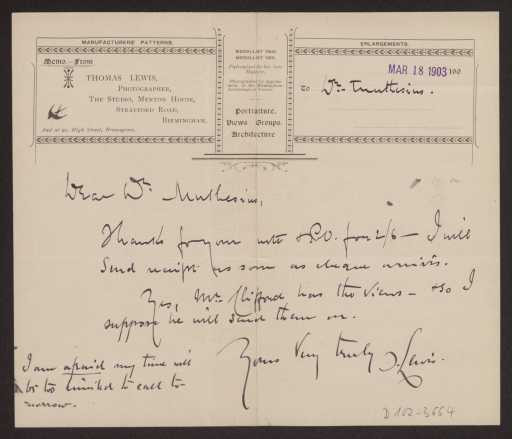 MANUFACTURERS' PATTERNS.
Memo. From
THOMAS LEWIS,
PHOTOGRAPHER,
THE STUDIO, MENTON HOUSE,
STRATFORD ROAD,
BIRMINGHAM.
And at 90, High Street, Bromsgrove.
MEDALLIST
MEDALLIST
Portraiture.
Views Groups.
Architecture
ENLARGEMENTS.
MAR 18 1903 190
To Dr. Muthesius.
Dear Dr. Muthesius,
Thanks for your note & P.O. for 2/6 — I will
send receipt as soon as cheque arrives.
Yes, Mr. Clifford has the views — & so I
suppose he will send them on.
Yours very truly T. Lewis.
I am afraid my time will
be too limited to call to-
morrow.
D 102-3664